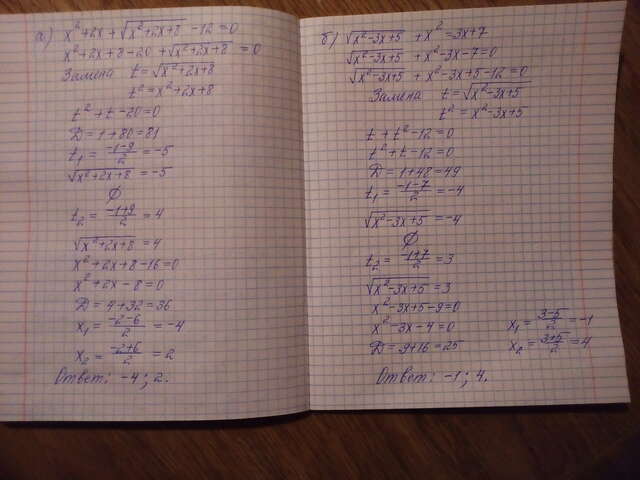 а) x²+2x+√(x²+2x+8) -12=0
x²+2x+8-20+√(x²+2x+8) =0
Замена t=√(x²+2x+8)
t²=x²+2x+8
t²+t-20=0
D=1+80=81
t₁=(-1-9)/2=-5
√(x²+2x+8)=-5
∅
t₂=(-1+9)/2=4
√(x²+2x+8)=4
x²+2x+8-16=0
x²+2x-8=0
D=4+32=36
x₁=(-2-6)/2=-4
x₂=(-2+6)/2=2
Ответ: -4; 2.
б) √(x²-3x+5) +x²=3x+7
√(x²-3x+5) +x²-3x-7=0
√(x²-3x+5) +x²-3x+5-12=0
Замена t=√(x²-3x+5)
t²=x²-3x+5
t+t²-12=0
t²+t-12=0
D=1+48=49
t₁=(-1-7)/2=-4
√(x²-3x+5)=-4
∅
t₂=(-1+7)/2=3
√(x²-3x+5)=3
x²-3x+5-9=0
x²-3x-4=0
D=9+16=25
x₁=(3-5)/2=-1
x₂=(3+5)/2=4
Ответ: -1; 4.